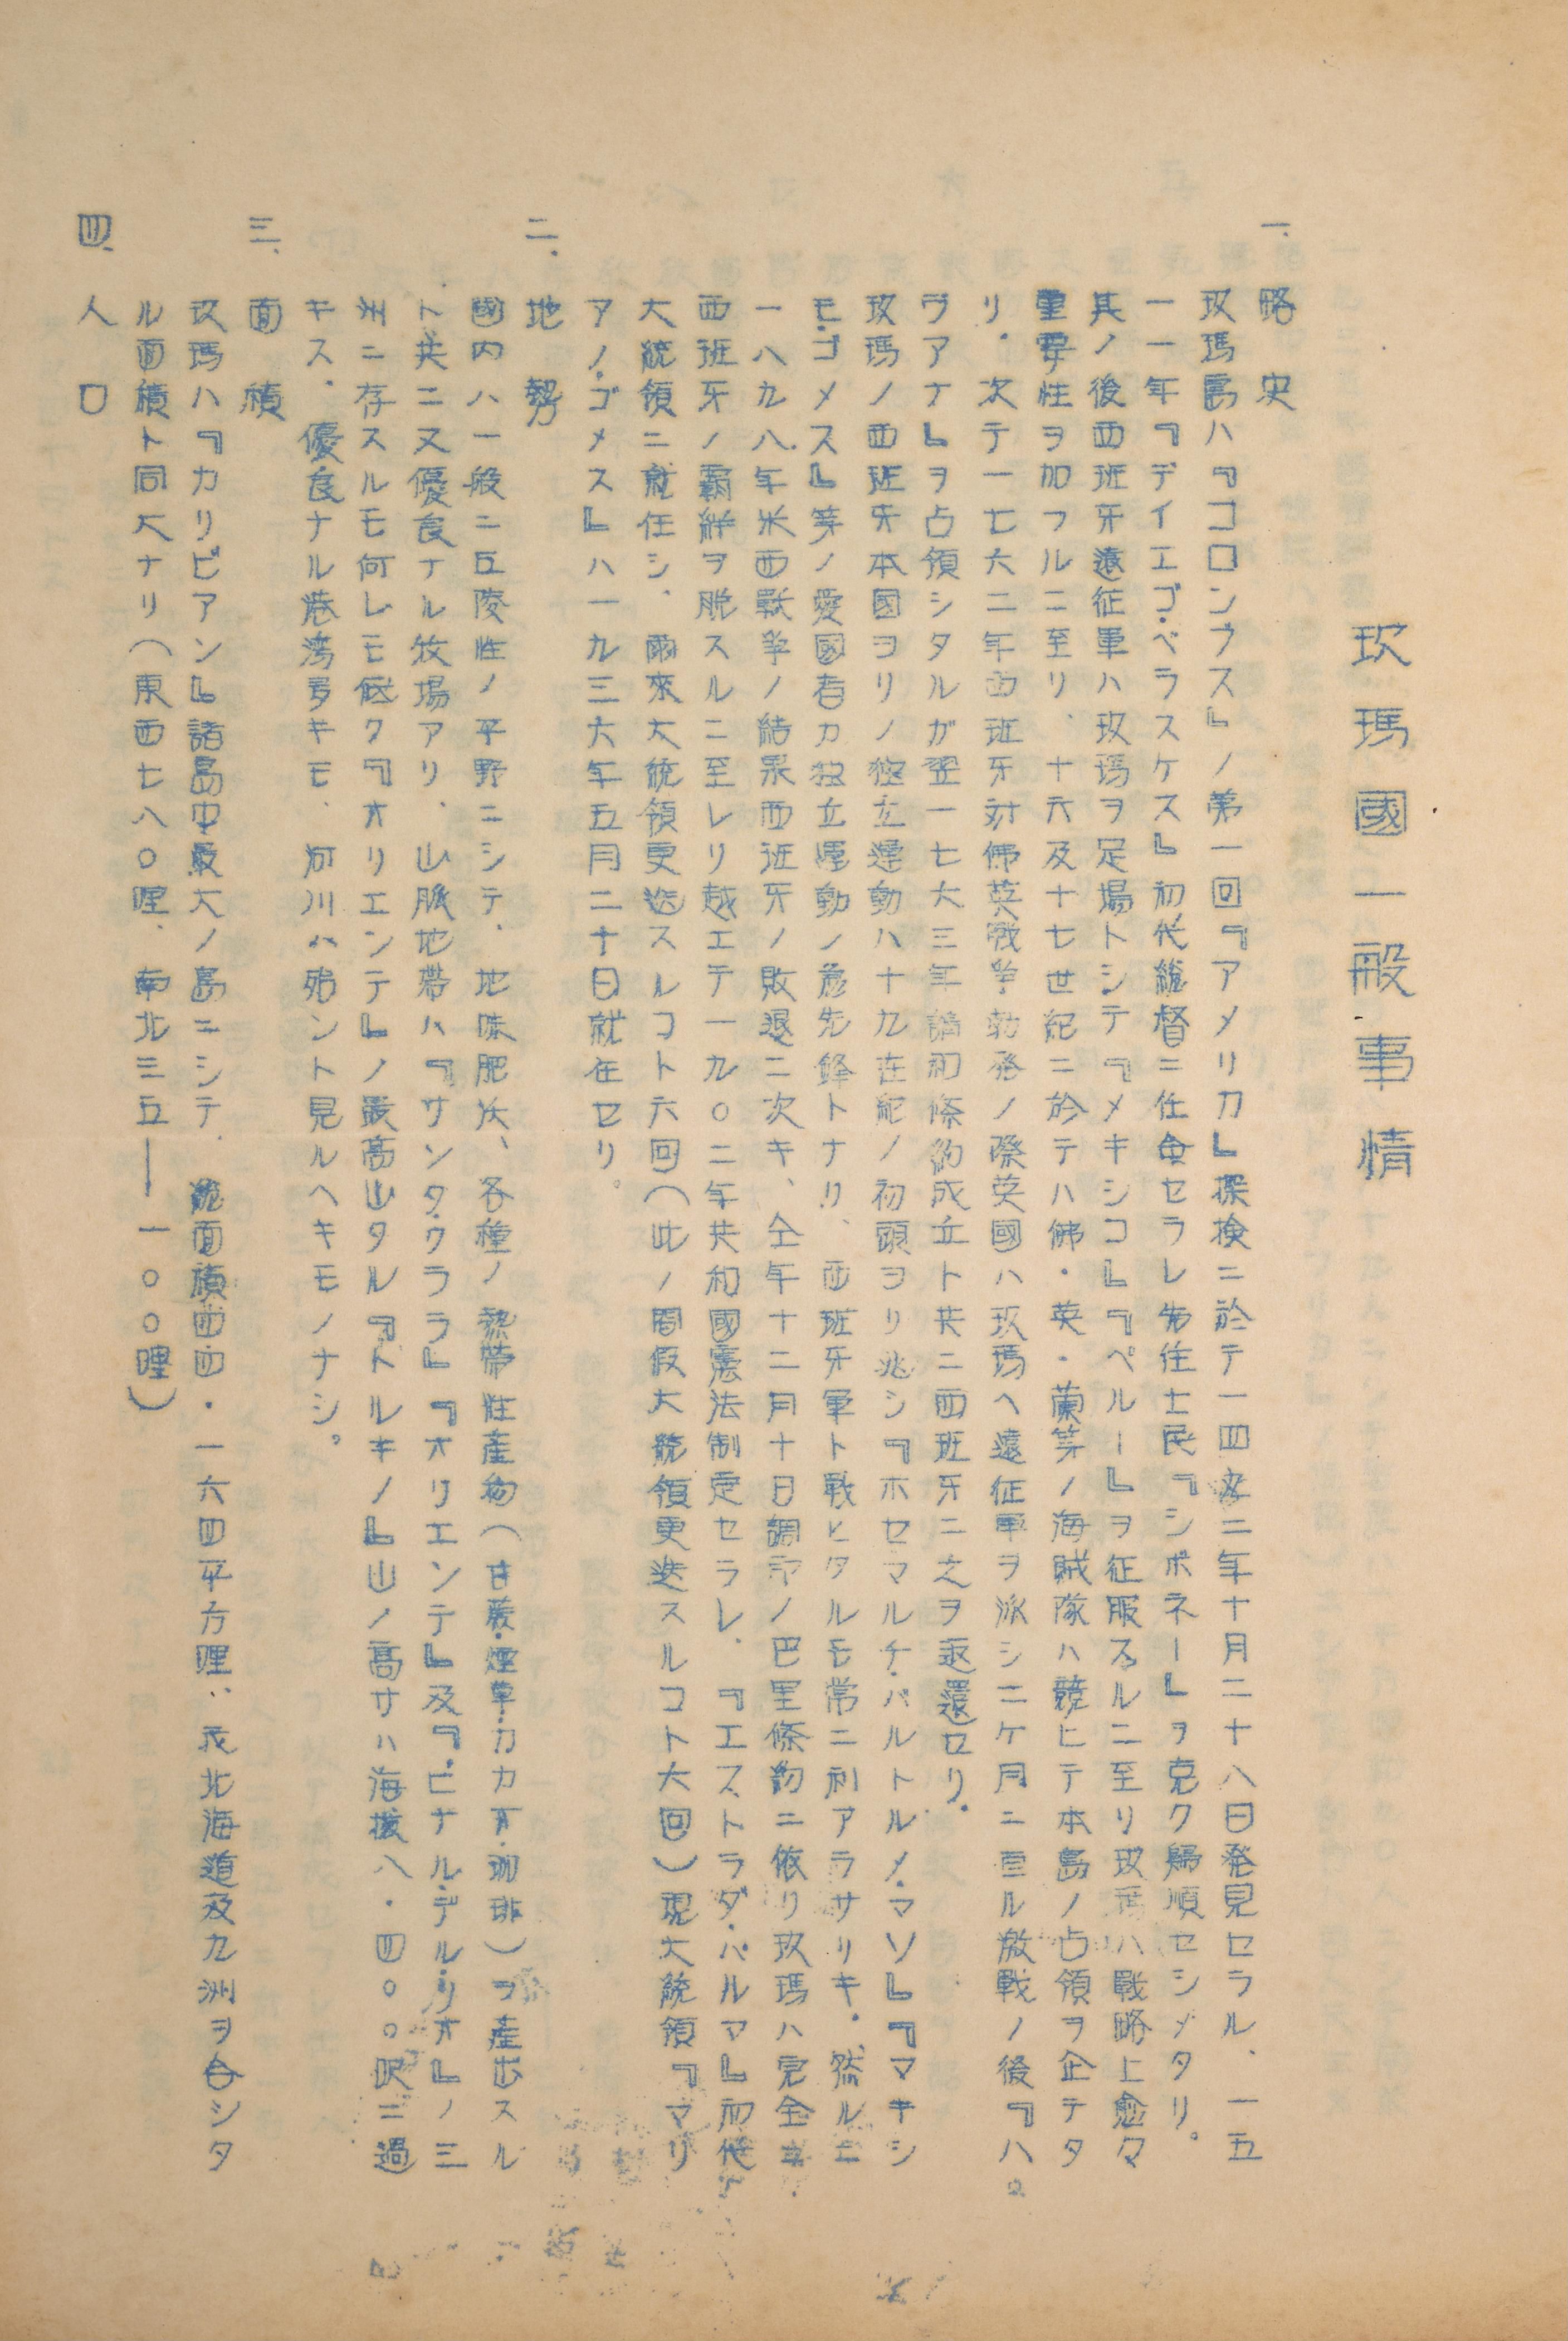 玖瑪國一般事情
一、略史
玖瑪島ハ『コロンブス』ノ第一回『アメリカ』探検ニ於テ一四九二年十月二十八日発見セラル、一五
一一年『デイエゴ・ベラスケス』初代総督ニ任命セラレ先住土民『シボネー』ヲ克ク歸順セシメタリ。
其ノ後西班牙遠征軍ハ玖瑪ヲ足場トシテ『メキシコ』『ペルー』ヲ征服スルニ至リ玖瑪ハ戰略上愈々
重要性ヲ加フルニ至リ、十六及十七世紀ニ於テハ佛・英・蘭等ノ海賊隊ハ競ヒテ本島ノ占領ヲ企テタ
リ。次テ一七六二年西班牙対佛英戰争勃発ノ際英國ハ玖瑪ヘ遠征軍ヲ派シ二ケ月ニ亘ル激戰ノ後『ハ
ヴアナ』ヲ占領シタルガ翌一七六三年講和條約成立ト共ニ西班牙ニ之ヲ返還セリ。
玖瑪ノ西班牙本國ヨリノ独立運動ハ十九世紀ノ初頭ヨリ兆シ『ホセマルチ・バルトルメ・マソ』『マキシ
モ・ゴメス』等ノ愛國者カ独立運動ノ急先鋒トナリ、西班牙軍ト戰ヒタルモ常ニ利アラサリキ。然ルニ
一八九八年米西戰争ノ結果西班牙ノ敗退ニ次キ、仝年十二月十日調印ノ巴里條約ニ依リ玖瑪ハ完全ニ
西班牙ノ覇絆ヲ脱スルニ至レリ越エテ一九〇二年共和國憲法制定セラレ、『エストラダ・パルマ』初代
大統領ニ就任シ、爾來大統領更迭スルコト六回（此ノ間假大統領更迭スルコト六回）現大統領『マリ
アノ・ゴメス』ハ一九三六年五月二十日就任セリ。
二、地勢
國内ハ一般ニ丘陵性ノ平野ニシテ、地味肥沃、各種ノ熱帶性産物（甘蔗・煙草・カカオ・珈琲）ヲ産出スル
ト共ニ又優良ナル牧場アリ、山脈地帶ハ『サンタ・クララ』『オリエンテ』及『ピナル・デル・リオ』ノ三
州ニ存スルモ何レモ低ク『オリエンテ』ノ最高山タル『トルキノ』山ノ高サハ海抜八・四〇〇呎ニ過
キス。優良ナル港湾多キモ、河川ハ殆ント見ルヘキモノナシ。
三、面積
玖瑪ハ『カリビアン』諸島中最大ノ島ニシテ、総面積四四・一六四平方哩、我北海道及九洲ヲ合シタ
ル面積ト同大ナリ（東西七八〇哩、南北三五―一〇〇哩）
四、人口